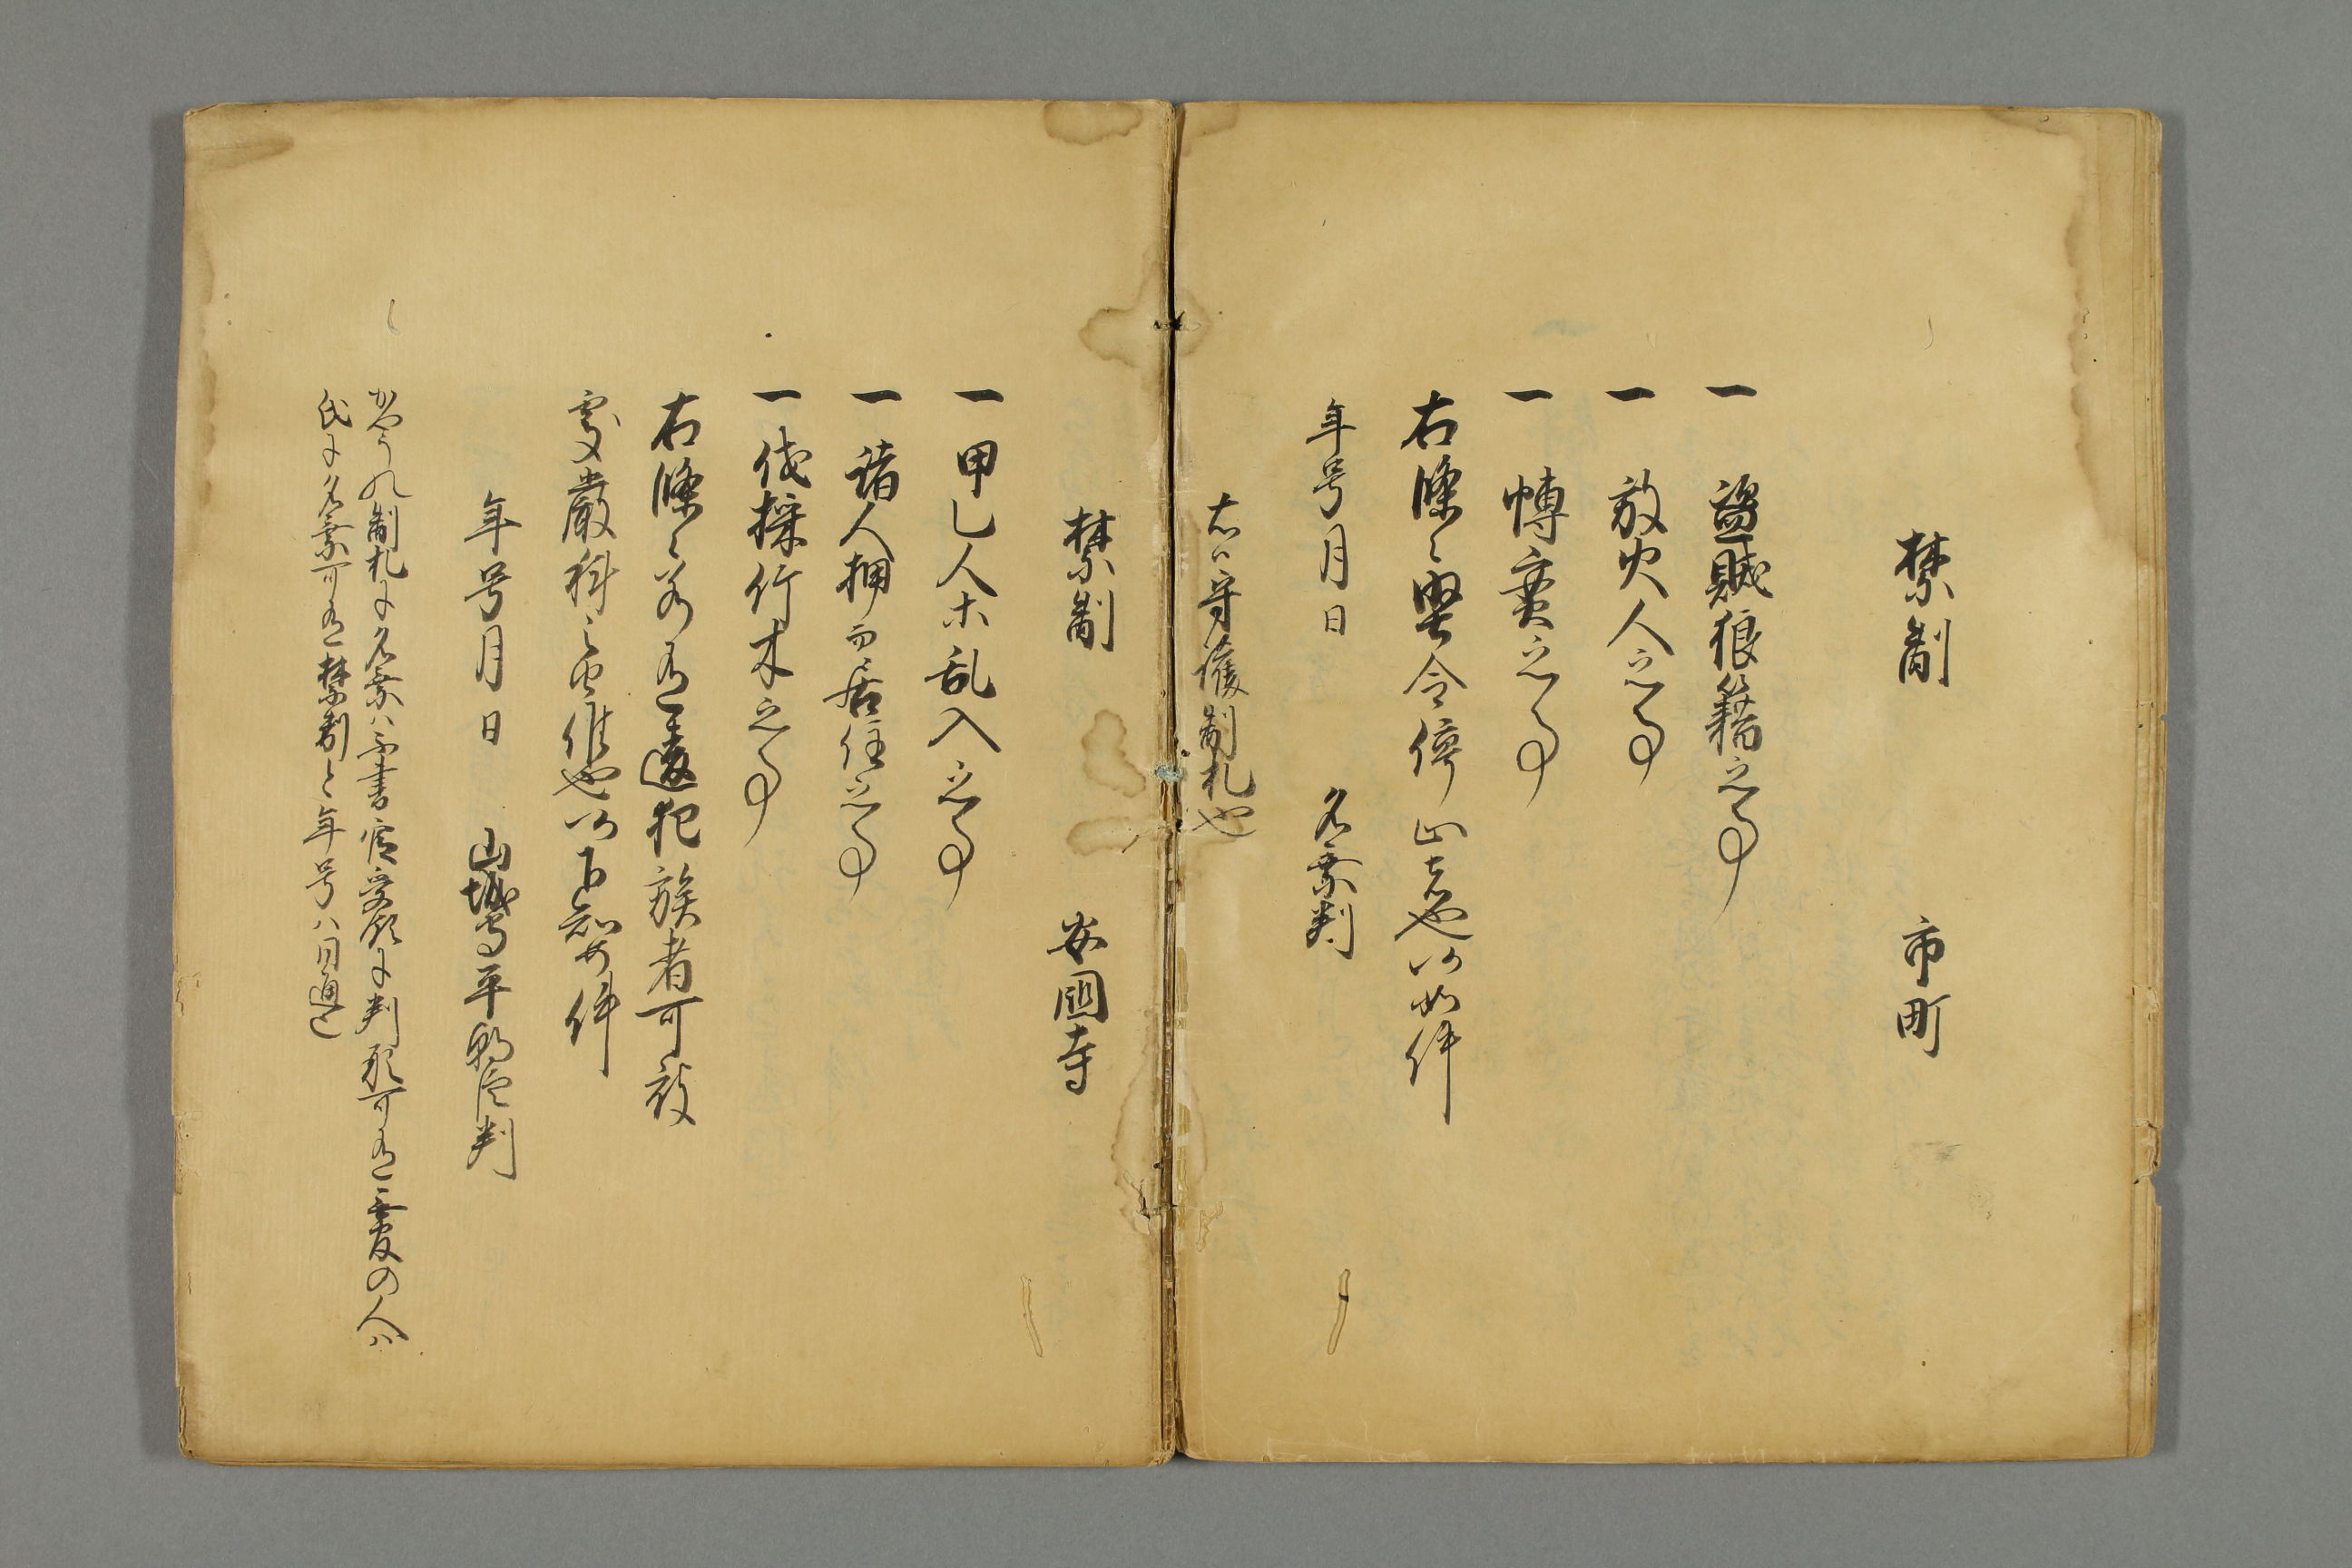 禁制　　市町
一　盗賊狼籍之事
一　放火人之事
一　博奕之事
右條々堅令停止者也仍如件
年号月日　　名乗判
右ハ守護制札也
禁制　　安國寺
一　甲乙人ホ乱入之事
一　諸人押而居住之事
一　伐採竹木之事
右條々若有違犯族者可被
處嚴科之由候也仍下知如件
年号月日　　山城守平朝臣判
かやうの制札ニ名乗ハ不書官受領ニ判形可有無官の人ハ
氏ニ名乗可有禁制と年号ハ同通也